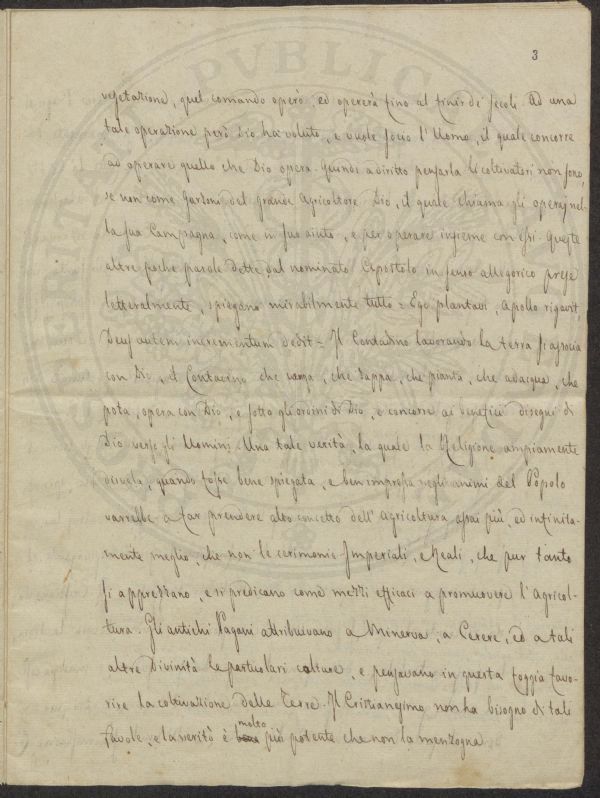 3
vegetazione, quel comando operò, ed opererà fino al finir de' secoli. Ad una
tale operazione però Dio ha voluto, e vuole socio l'Uomo, il quale concorre
ad operare quello che Dio opera. Quindi a diritto pensarla li coltivatori non sono,
se non come Garzoni del grande Agricoltore Dio, il quale chiama gli operaj nel-
la sua Campagna, come in suo aiuto, e per operare insieme con essi. Queste
altre poche parole dette dal nominato Apostolo in senso allegorico prese
letteralmente, spiegano mirabilmente tutto = Ego plantavi, Apollo rigavit,
Deus autem incrementum dedit = Il Contadino lavorando la terra si associa
con Dio, il Contadino che vanga, che zappa, che pianta, che adacqua, che
pota, opera con Dio, e sotto gli ordini di Dio, e concorre ai benefici disegni di
Dio verso gli Uomini. Una tale verità, la quale la Religione ampiamente
disvela, quando fosse bene spiegata, e ben impressa negli animi del Popolo
varrebbe a far prendere alto concetto dell'Agricoltura assai più, ed infinita-
mente meglio, che non le cerimonie Imperiali, e Reali, che pur tanto
si apprezzano, e si predicano come mezzi efficaci a promuovere l'Agricol-
tura. Gli antichi Pagani attribuivano a Minerva, a Cerere, ed a tali
altre Divinità le particolari colture, e pensavano in questa foggia favo-
rire la coltivazione delle Terre. Il Cristianesimo non ha bisogno di tali
favole, e la verità è molto più potente che non la menzogna